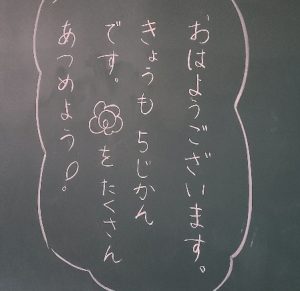 おはようございます。
きょうも5じかん
です。をたくさん
あつめよう!